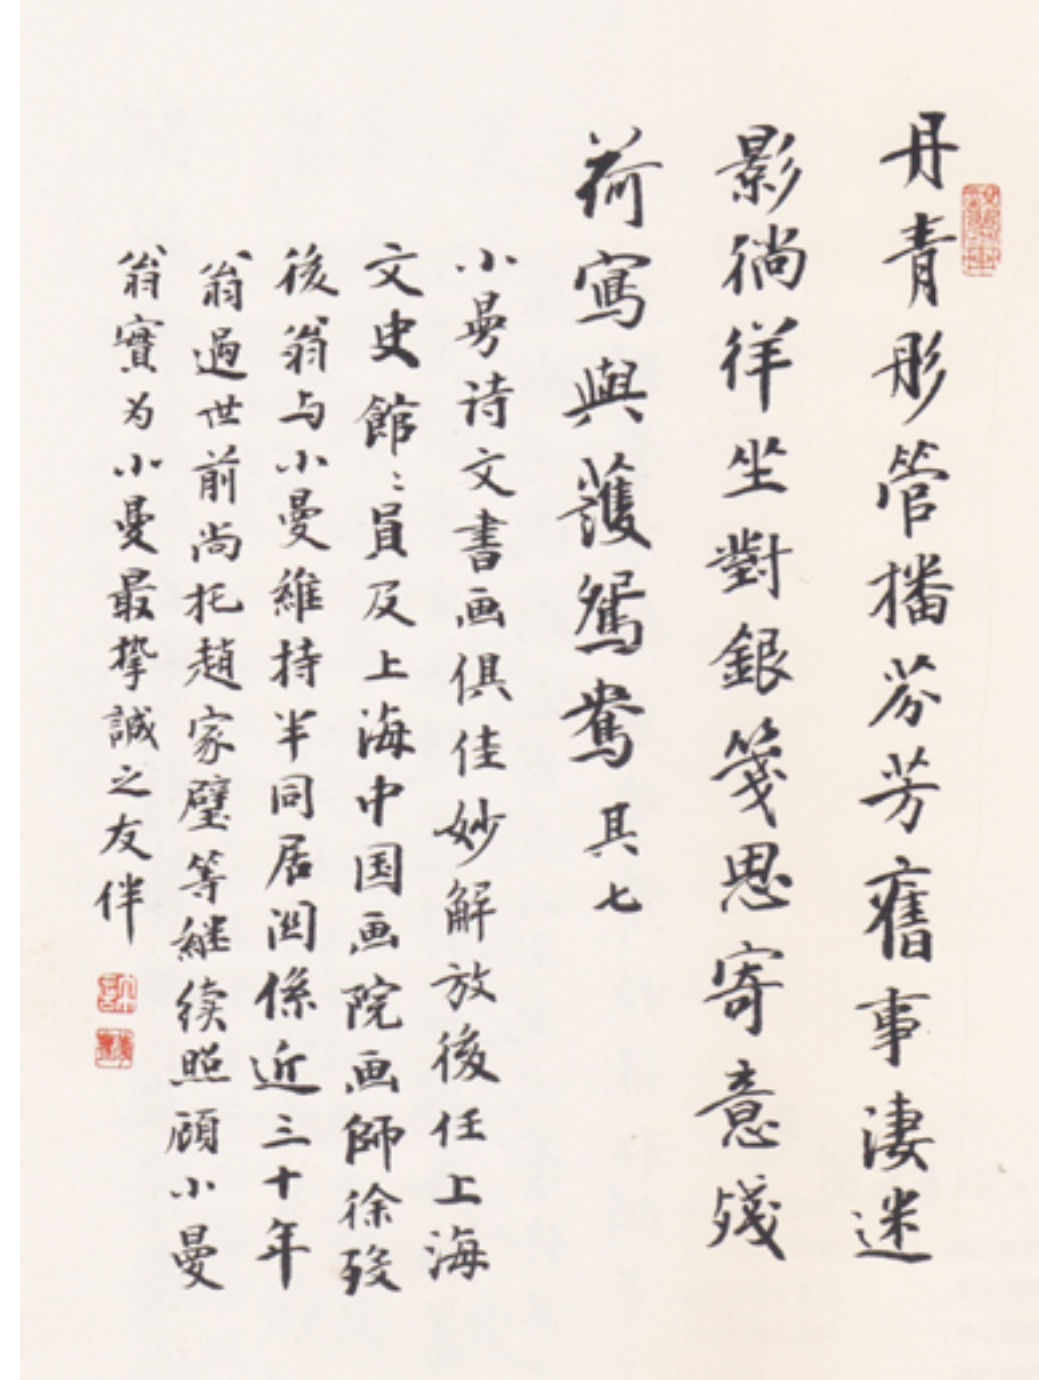 丹青彤管播芬芳舊事淒迷
影徜徉坐對銀箋思寄意殘
荷寫與護鴛鴦其七
小曼诗文書画俱佳妙解放後任上海
文史館〻員及上海中国画院画師徐殁
後翁与小曼維持半同居関係近三十年
翁過世前尚托趙家璧等継续照顾小曼
翁實为小曼最挚誠之友伴